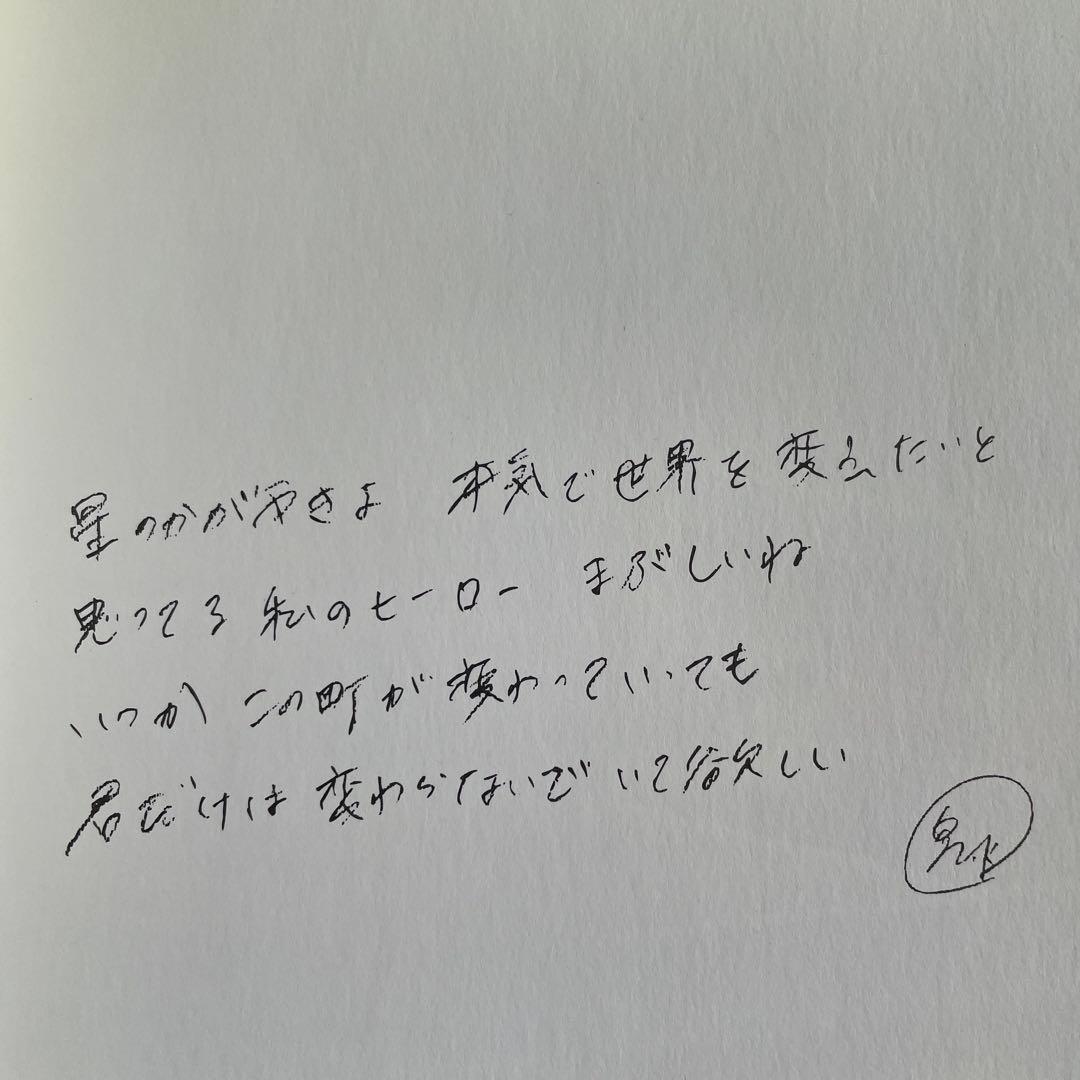 星のかがやきよ 本気で世界を変えたいと
思ってる 私のヒーロー まぶしいね
いつか この町が変わっていても
君だけは変わらないでいて欲しい